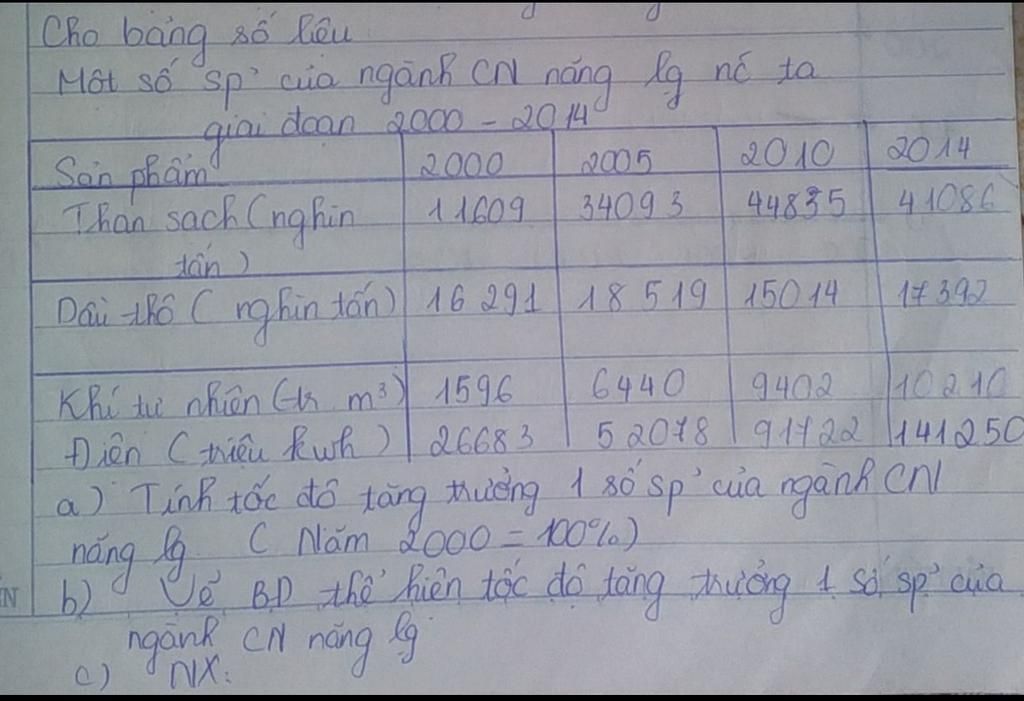 Cho bảng số liệu
Một số sp' của ngành CN năng lg nc ta
giai đoạn 2000 - 2014
Sản phẩm 2000 2005 2010 2014
Than sạch (nghìn 11609 34093 44835 41086
tấn)
Dầu thô (nghìn tấn) 16 291 18 519 15014 17 392
Khí tự nhiên (tr m³) 1596 6440 9402 10 210
Điện (triệu kwh) 26683 52078 91722 141250
a) Tính tốc độ tăng trưởng 1 số sp' của ngành CN
năng lg (Năm 2000 = 100%)
b) Vẽ BĐ thể hiện tốc độ tăng trưởng 1 số sp' của
ngành CN năng lg
c) NX: